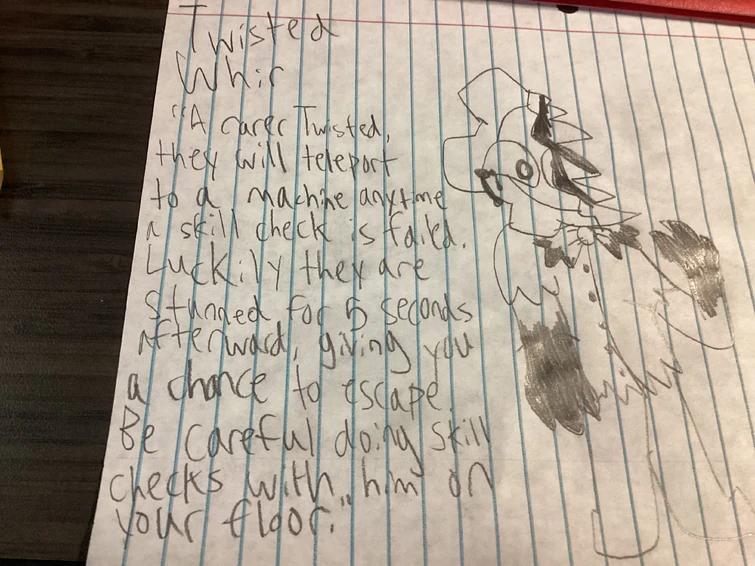 Twisted
Whir
"A rarer Twisted,
they will teleport
to a machine anytme
a skill check is failed.
Luckily they are
stunned for 5 seconds
afterward, giving you
a chance to escape.
Be careful doing skill
checks with him on
your floor."